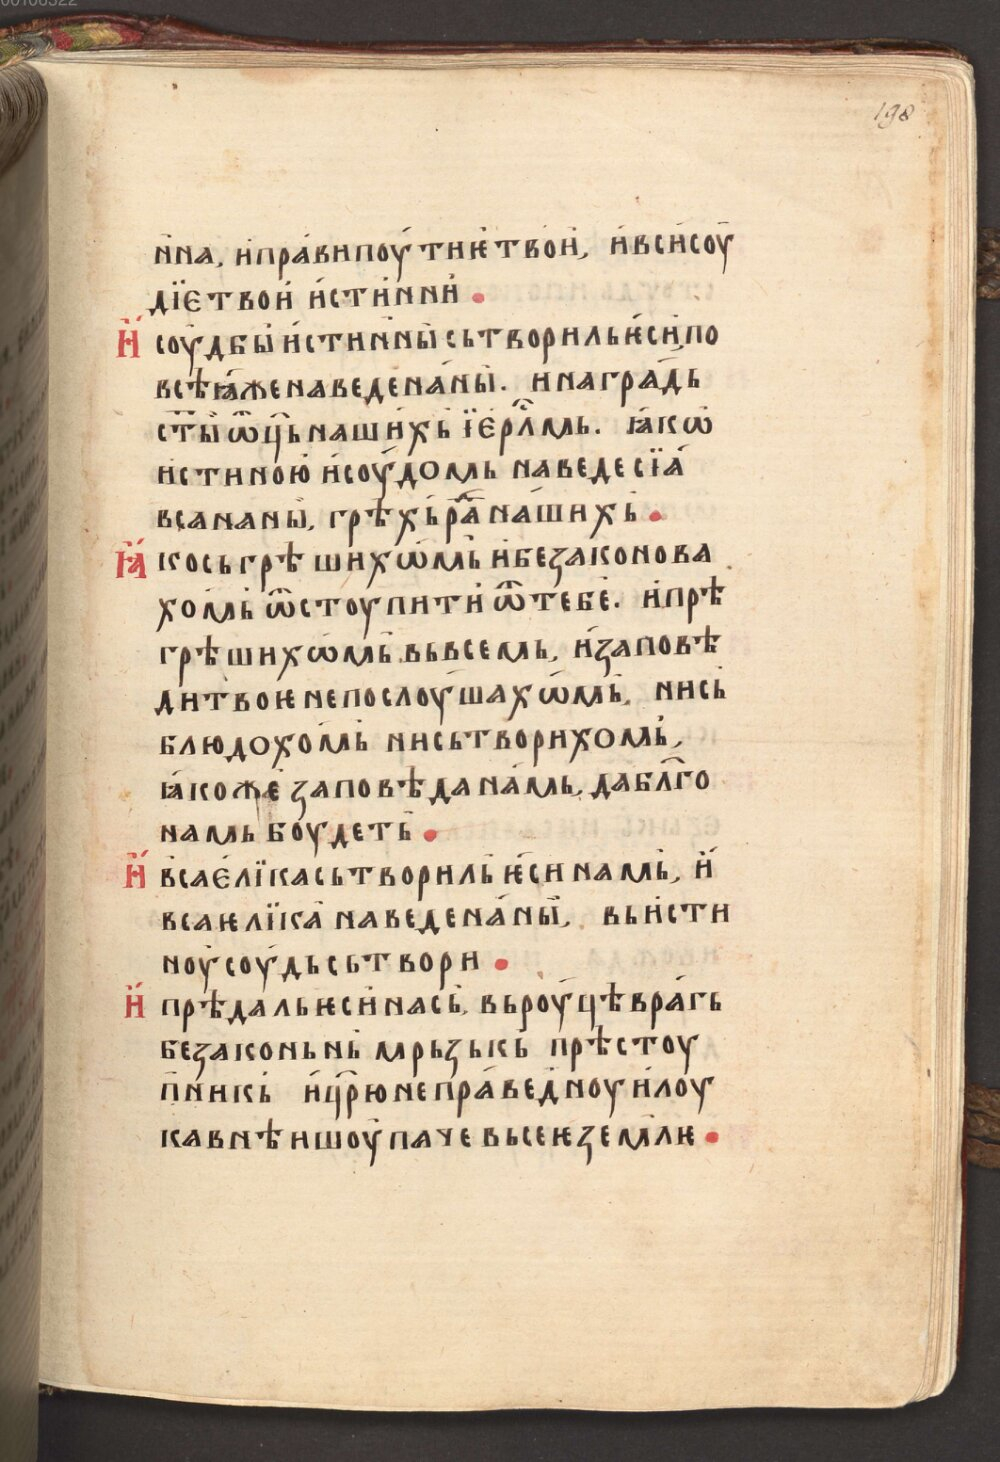 00106322
198
и́нна, и́пра́ви поу́тиѥ твои́, и́ вси́ соу́
дїе твои́ и́сти́нни́
И҆ соу́дбы̀ и́сти́нны̀ сьтвориль ѥ́си, по
всѣ́ ꙗ́же наведе на́ны̀. и на гра́дь
ст҃ы̀ ѿц҃ь наши́хь їе́рл҃мь. ꙗ́кѡ
и́стиною̀ и́соу́домь наведе сїа́
вса на ны̀, грѣ́хь ра́д҃ на́шихь
Ꙗ́ко сьгрѣшихѡ́мь и́безаконова
хо́мь ѿстоупити́ ѿ тебѐ. и́прѣ
грѣшихѡ́мь вьвсемь, и́заповѣ
ди твоѥ не послоу́шахѡ́мь, ни сь
блюдохо́мь ни сьтворихо́мь,
ꙗ́кожѐ заповѣда на́мь, да бл҃го
намь боу́деть
И҆ вса е́лїка сьтвориль ѥ́си намь, и҆
вса ѥлїка̀ наведе на́ны̀, вь и́сти
ноу́ соу́дь сьтвори
И҆ прѣдаль ѥси́ нась, вь роу́цѣ вра́гь
безаконьнь мрьзькь прѣстоу
пникь и́цр҃ю непра́ведноу и́лоу
кавнѣншоу́ паче вьсеѥ земліѥ